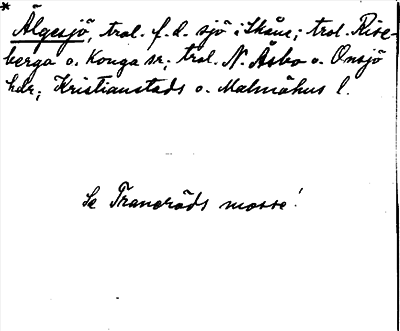 * Älgesjö, trol. f.d. sjö i Skåne; trol. Rise-
berga o. Konga sr; trol. N. Åsbo o. Onsjö
hdr; Kristianstads o. Malmöhus l.
Se Traneröds mosse!